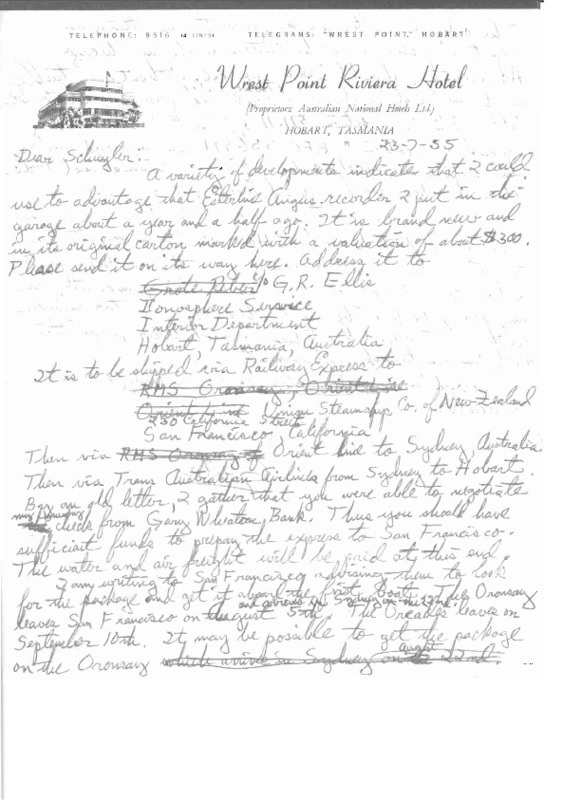 TELEPHONE: 9516 (4 LINES) TELEGRAMS: "WREST POINT," HOBART
Wrest Point Riviera Hotel
(Proprietors: Australian National Hotels Ltd.)
HOBART, TASMANIA
23-7-55
Dear Schuyler:
A variety of developments indicate that I could
use to advantage that Esterline Angus recorder I put in the
garage about a year and a half ago. It is brand new and
in its original carton marked with a valuation of about $300.
Please send it on its way here. Address it to
Grote Reber % G.R. Ellis
Ionosphere Service
Interior Department
Hobart, Tasmania, Australia
It is to be shipped via Railway Express to
RMS Oronsay, Orient Line
Orient Line Union Steamship Co. of New Zealand
230 California Street
San Francisco, California
Then via RMS Oronsay of Orient Line to Sydney, Australia
Then via Trans Australian Airlines from Sydney to Hobart.
By an old letter, I gather that you were able to negotiate
check from Gary Wheaton Bank. Thus you should have
sufficient funds to prepay the express to San Francisco.
The water and air freight will be paid at this end.
I am writing to San Francisco advising them to look
for the package and get it aboard the first boat. The Oronsay
and arrives in Sydney on the 22nd.
leaves San Francisco on August 5th. The Orcades leaves on
September 10th. It may be possible to get the package
on the Oronsay which arrives in Sydney on August 22nd.